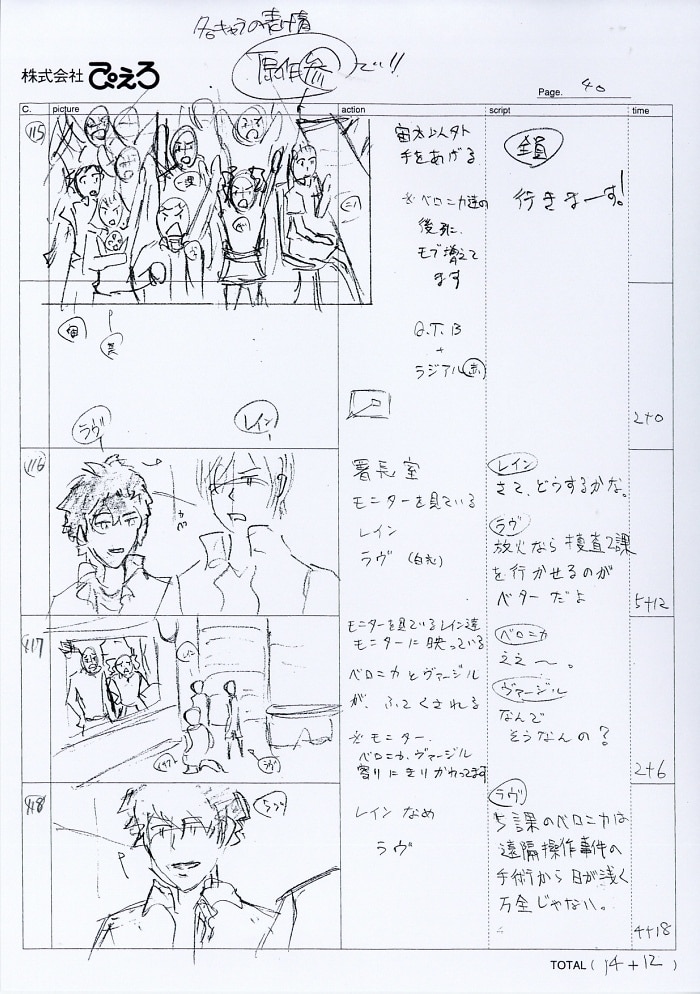 各キャラの表情
原作参で!!
株式会社 ぴえろ
Page. 40
C.
picture
action
script
time
115
宙太以外
手をあげる
※ベロニカ達の
後ろに、
モブ増えて
ます
Q.T.B
+
ラジアル
全員
行きまーす!
2+0
116
ラヴ
レイン
署長室
モニターを見ている
レイン
ラヴ
レイン
さて、どうするかな。
ラヴ
放火なら捜査2課
を行かせるのが
ベターだよ
5+12
117
モニターを見ているレイン達
モニターに映っている
ベロニカとヴァージル
が、ふてくされる
※モニター、
ベロニカ、ヴァージル
寄りにきりかわってます
ベロニカ
ええ〜。
ヴァージル
なんで
そうなんの?
2+6
118
ラヴ
レインなめ
ラヴ
ラヴ
5課のベロニカは
遠隔操作事件の
手術から日が浅く
万全じゃない。
4+18
TOTAL ( 14+12 )